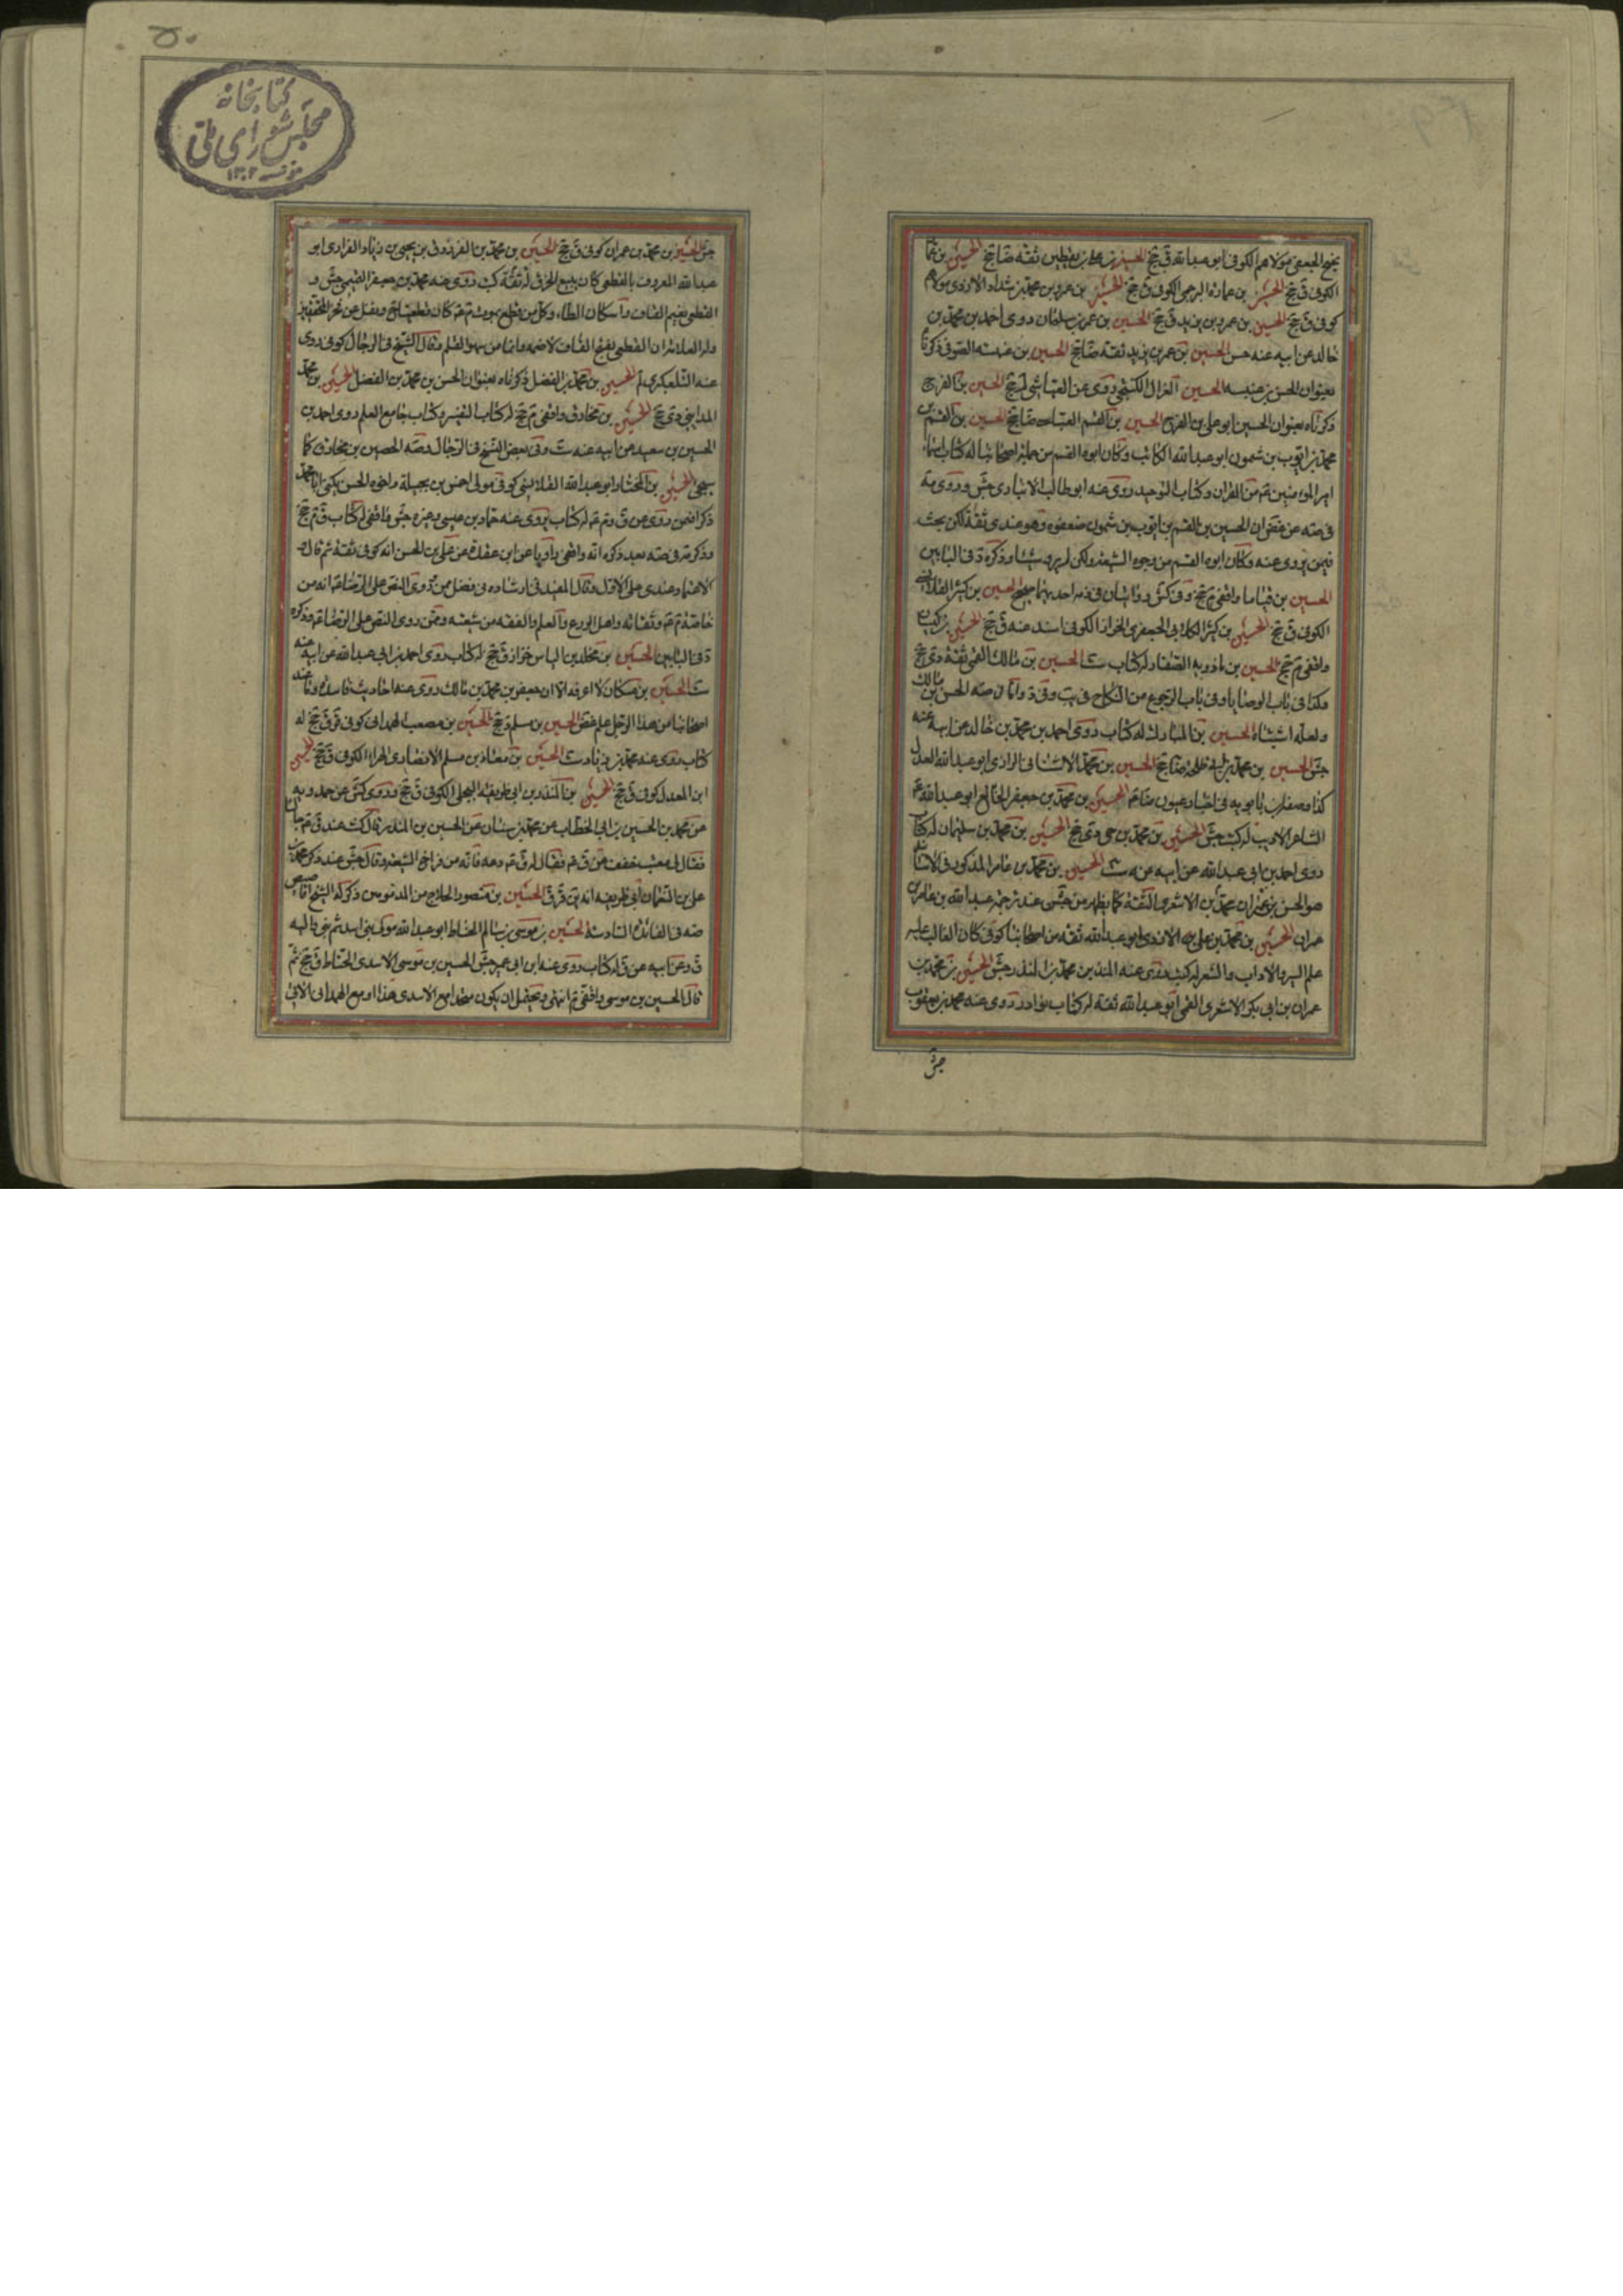 الكوفي ق جخ الحسين بن عمارة البرجمي الكوفي ق جخ الحسين بن عمرو بن محمد بن شداد الازدي مولاهم
كوفي ق جخ الحسين بن عمرو بن يزيد ق جخ الحسين بن عمر بن سلمان روى احمد بن محمد بن
خالد عن ابيه عنه الحسين بن عمر بن يزيد ثقة ضا جخ الحسين بن عنبسه الصوفي ذكرناه
بعنوان الحسن بن عنبسه الحسين الغزال الكنتجي روى عن العياشي لم جخ الحسين بن الفرج
ذكرناه بعنوان الحسين ابو علي بن الفرج الحسين بن القسم العباسي ضا جخ الحسين بن القسم بن
محمد بن ايوب بن شمون ابو عبد الله الكاتب وكان ابوه القسم من اصحابنا له كتاب اسماء
امير المؤمنين من القران وكتاب التوحيد روى عنه ابو طالب الانباري جش
ان الحسين بن القسم بن ايوب بن شمون ضعفوه وهو عندي ثقة لكن بحث
فيمن يروي عنه وكان ابوه القسم من وجوه الشيعة ولكن لم يرو شيئا وذكره د في البابين
الحسين بن قياما واقفي م جخ الحسين بن كثير القلانسي
الكوفي ق جخ الحسين بن كثير الكلابي الجعفري الخزاز الكوفي اسند عنه ق جخ الحسين بن
واقفي م جخ الحسين بن ماذويه الصفار له كتاب الحسين بن مالك القمي ثقة دي جخ
هكذا في باب الوصايا وفي باب الرجوع من النكاح في الحسن بن مالك
ولعله اشتباه الحسين بن المبارك له كتاب روى احمد بن محمد بن خالد عن ابيه عنه
جش الحسين بن محمد بن ابي طلحة ضا جخ الحسين بن محمد الاشناني الرازي ابو عبد الله العدل
كذا وصفه ابن بابويه في اخبار عيون الحسين بن محمد بن جعفر الخالع ابو عبد الله
الشاعر الاديب له كتب جش الحسين بن محمد بن حي دي جخ الحسين بن محمد بن سليمان له كتاب
روى احمد بن ابي عبد الله عن ابيه عنه الحسين بن محمد بن عامر المذكور في الاسناد
هو الحسين بن عمران محمد بن الاشعري الثقة كما يظهر من جش عند ترجمة عبد الله بن عامر بن
عمران الحسين بن محمد بن علي الازدي ابو عبد الله ثقة من اصحابنا كوفي كان الغالب عليه
علم السير والاداب والشعر له كتب روى عنه المنذر بن محمد بن المنذر جش الحسين بن محمد بن
عمران بن ابي بكر الاشعري القمي ابو عبد الله ثقة له كتاب نوادر روى عنه محمد بن يعقوب
جش
۵۰
کتابخانه
مجلس شورای ملی
۱۳۰۲
جش الحسين بن محمد بن عمران كوفي ق جخ الحسين بن محمد بن الفرزدق بن بجير بن زياد الفزاري ابو
عبد الله المعروف بالقطعي كان يبيع الخرق ثقة له كتب روى عنه محمد بن جعفر التميمي جش و
القطعي بضم القاف واسكان الطاء وكل من قطع بموت
العلامة ان القطعي بفتح القاف لا ضمه وانما من سهو القلم وقال الشيخ في الرجال كوفي روى
عنه التلعكبري لم الحسين بن محمد بن الفضل ذكرناه بعنوان الحسن بن محمد بن الفضل الحسين بن محمد
المدايني دي جخ الحسين بن مخارق واقفي م جخ له كتاب التفسير وكتاب جامع العلم روى احمد بن
الحسين بن سعيد عن ابيه عنه ست وفي بعض النسخ في الرجال وصه الحصين بن مخارق كما
سيجي الحسين بن المختار ابو عبد الله القلانسي كوفي مولى احمس من بجيلة واخوه الحسن يكنى ابا محمد
ذكرا فيمن روى عن ق وم له كتاب يروي عنه حماد بن عيسى وغيره جش واقفي له كتاب ق م جخ
وذكر في صه بعد ذكره انه واقفي راويا عن ابن عقدة عن علي بن الحسن انه كوفي ثقة ثم قال و
الاعتماد عندي على الاول وقال المفيد في ارشاده في فصل ممن روى النص على الرضا انه من
خاصته وثقاته واهل الورع والعلم والفقه من شيعته وممن روى النص على الرضا وذكره
د في البابين الحسين بن مخلد بن الياس خزاز ق جخ له كتاب روى احمد بن ابي عبد الله عن ابيه عنه
ست الحسين بن مسكان لا اعرفه الا ان جعفر بن محمد بن مالك روى عنه احاديث فاسدة وما عند
اصحابنا من هذا الرجل علم غض الحسين بن مسلم ج جخ الحسين بن مصعب الهمداني كوفي قر ق جخ له
كتاب روى عنه محمد بن زياد ست الحسين بن معاذ بن مسلم الانصاري الهراء الكوفي ق جخ الحسين
ابن المعدل كوفي ق جخ الحسين بن المنذر بن ابي طريفة البجلي الكوفي ق جخ وروى كش عن حمدويه
عن محمد بن الحسين بن ابي الخطاب عن محمد بن سنان عن الحسين بن المنذر قال كنت عند ق جالسا
فقال لي معتب خفف عن ق فقال له ق دعه فانه من فراخ الشيعة وقال جش عند ذكر محمد بن
علي بن النعمان ابي طريفة انه الحسين بن منصور الحلاج من المذمومين ذكر له الشيخ اقاصيص
صه في الفائدة السادسة الحسين بن موسى بن سالم الحناط ابو عبد الله مولى بني اسد ثم بني والبه
ق وعن ابيه عن ق له كتاب روى عنه ابن ابي عمير جش الحسين بن موسى الاسدي الحناط ق جخ ثم
قال الحسين بن موسى واقفي م انتهى ويحتمل ان يكون متحدا مع الاسدي هذا او مع الهمداني الاتي